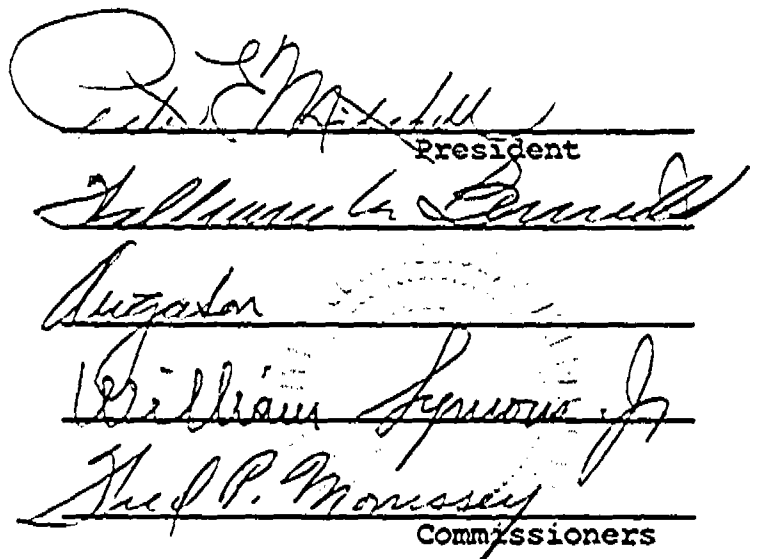 Peter E. Mitchell
President
William M. Bennett
A. W. Gatov
William Symons Jr
Fred P. Morrissey
Commissioners